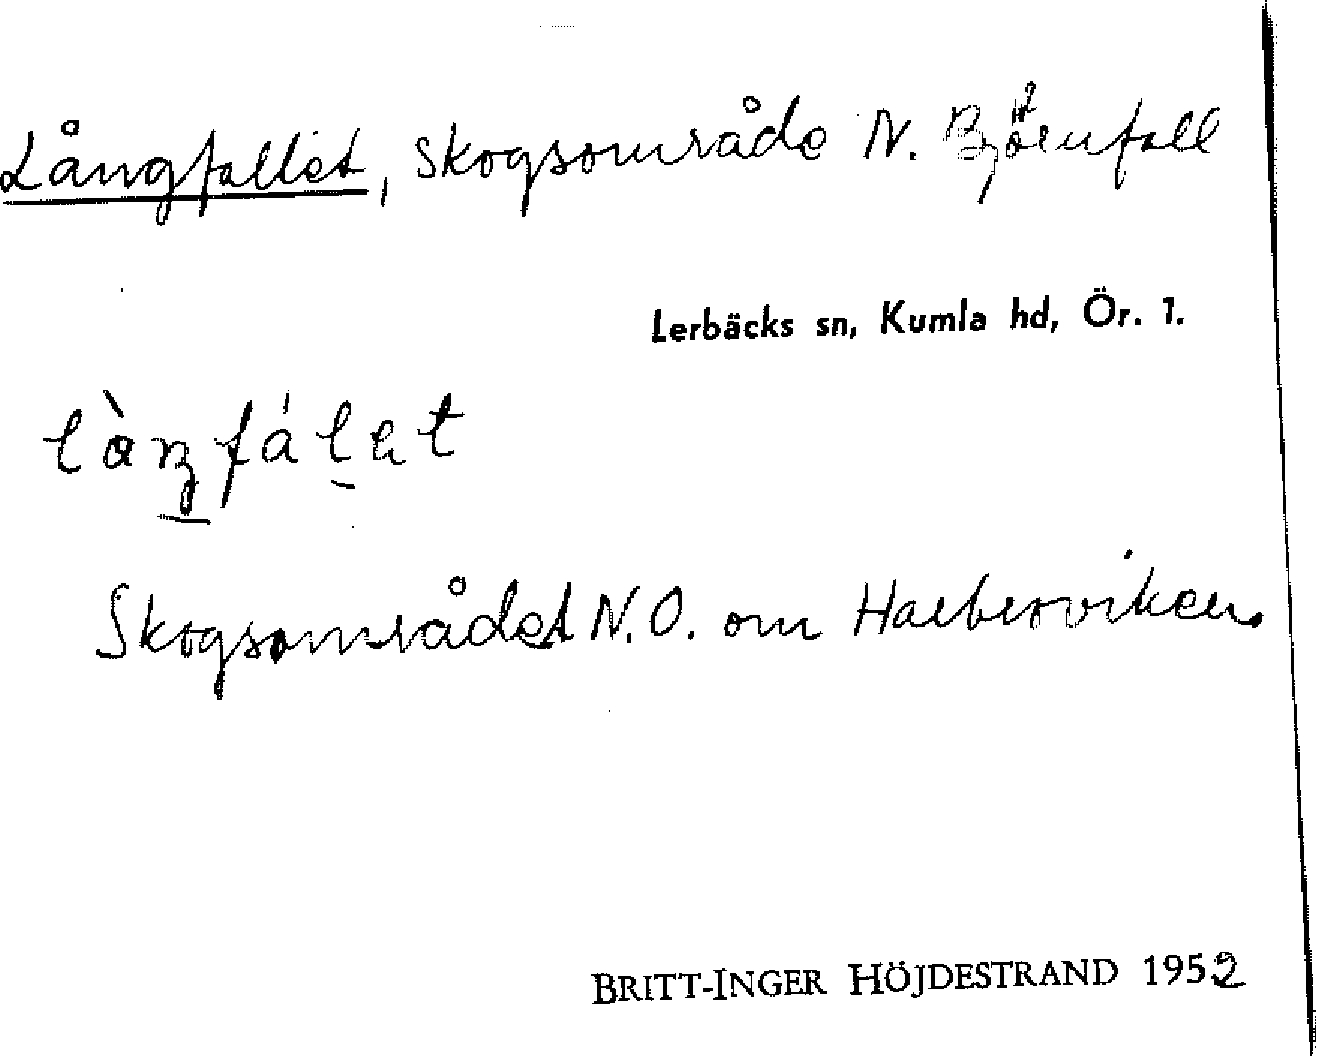 Långfallet, skogsområde N. Björnfall
Lerbäcks sn, Kumla hd, Ör. 1.
Skogsområdet N.O. om
BRITT-INGER HÖJDESTRAND 1952